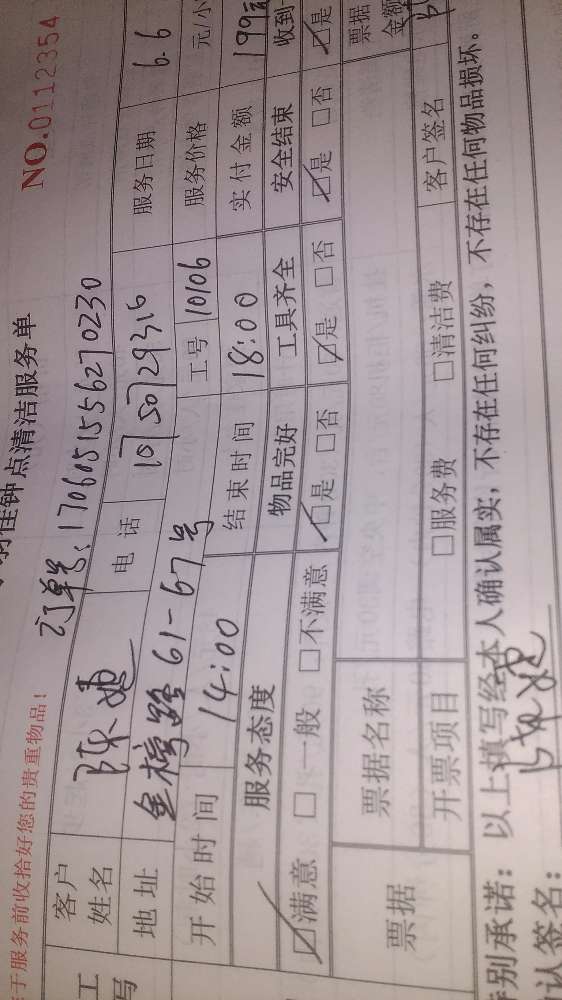 NO.0112354
钟点清洁服务单
于服务前收拾好您的贵重物品！ 订单号：170605155627 0230
客户姓名 陈婕 电话 服务日期 6.6
地址 金榜路61-67号 工号 10106 服务价格 元/小
开始时间 14:00 结束时间 18:00 实付金额 199元
服务态度 物品完好 工具齐全 安全结束 收到
☑满意 □一般 □不满意 ☑是 □否 ☑是 □否 ☑是 □否 ☑是
票据 票据名称 票据金额
开票项目 □服务费 □清洁费 客户签名
特别承诺：以上填写经本人确认属实，不存在任何纠纷，不存在任何物品损坏。
认签名：陈婕
工
写